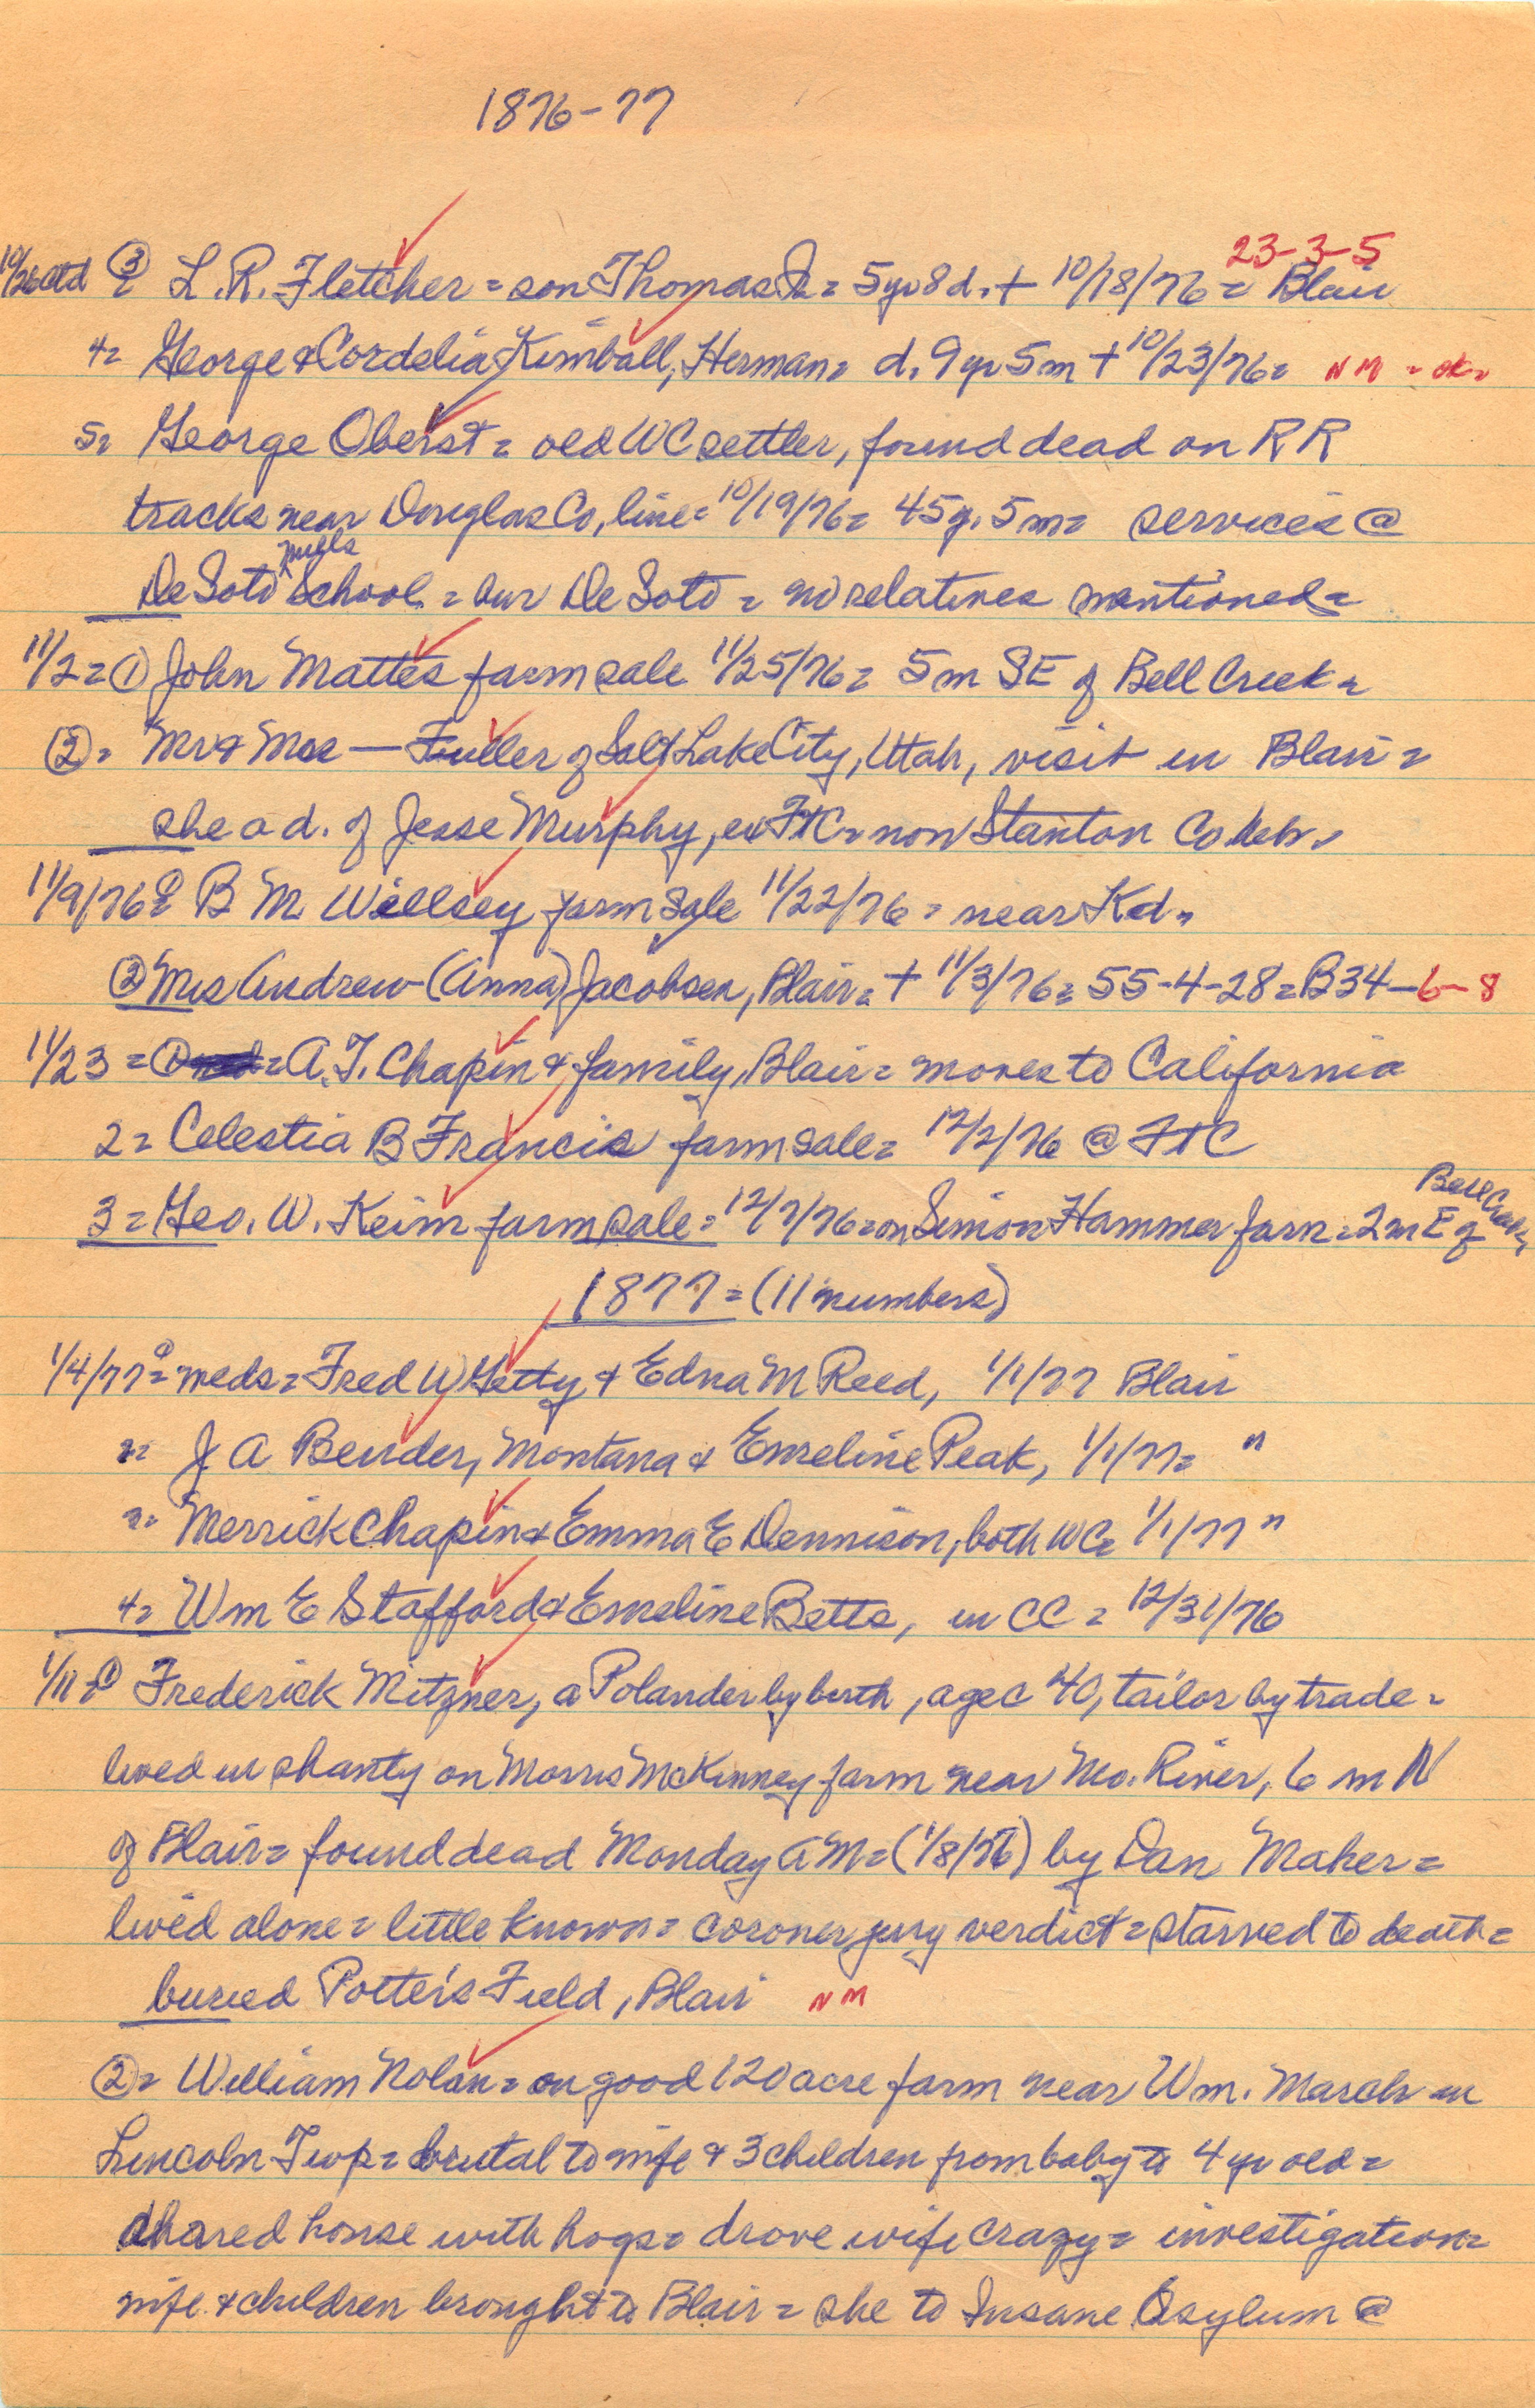 1876-77
23-3-5
10/26 ctd ③ = L.R. Fletcher = son Thomas = 5yr 8d. + 10/18/76 = Blair
4= George & Cordelia Kimball, Herman = d. 9yr 5m + 10/23/76 = NM = ok=
5= George Oberst = old WC settler, found dead on RR
tracks near Douglas Co, line = 10/19/76 = 45y. 5m = services @
De Soto Mills School = bur De Soto = no relatives mentioned =
11/2 = ① John Mattes farm sale 11/25/76 = 5m SE of Bell Creek =
②= Mr & Mrs — Fuller of Salt Lake City, Utah, visit in Blair =
she a d. of Jesse Murphy, ex FtC = now Stanton Co Neb =
11/9/76 ① = B M Willsey farm sale 11/22/76 = near Kd =
② Mrs Andrew (Anna) Jacobsen, Blair = + 11/3/76 = 55-4-28 = B34-6-8
11/23 = ① = A.T. Chapin & family, Blair = moves to California
2= Celestia B Francis farm sale = 12/2/76 @ FtC
3= Geo. W. Keim farm sale = 12/7/76 = on Simon Hammer farm = 2m E of Bell Creek =
1877 = (11 numbers)
1/4/77 ① = weds = Fred W Getty & Edna M Reed, 1/1/77 Blair
2= J A Bender, Montana & Emeline Peak, 1/1/77 = "
3= Merrick Chapin & Emma E Dennison, both WC = 1/1/77 "
4= Wm E Stafford & Emeline Betts, in CC = 12/31/76
1/11 = ① Frederick Mitzner, a Polander by birth, age c 40, tailor by trade =
lived in shanty on Morris McKinney farm near Mo. River, 6 m N
of Blair = found dead Monday AM = (1/8/76) by Dan Maher =
lived alone = little known = coroner jury verdict = starved to death =
buried Potter's Field, Blair NM
②= William Nolan = on good 120 acre farm near Wm. March in
Lincoln Twp = brutal to wife & 3 children from baby to 4 yr old =
shared house with hogs = drove wife crazy = investigation =
wife & children brought to Blair = she to Insane Asylum @